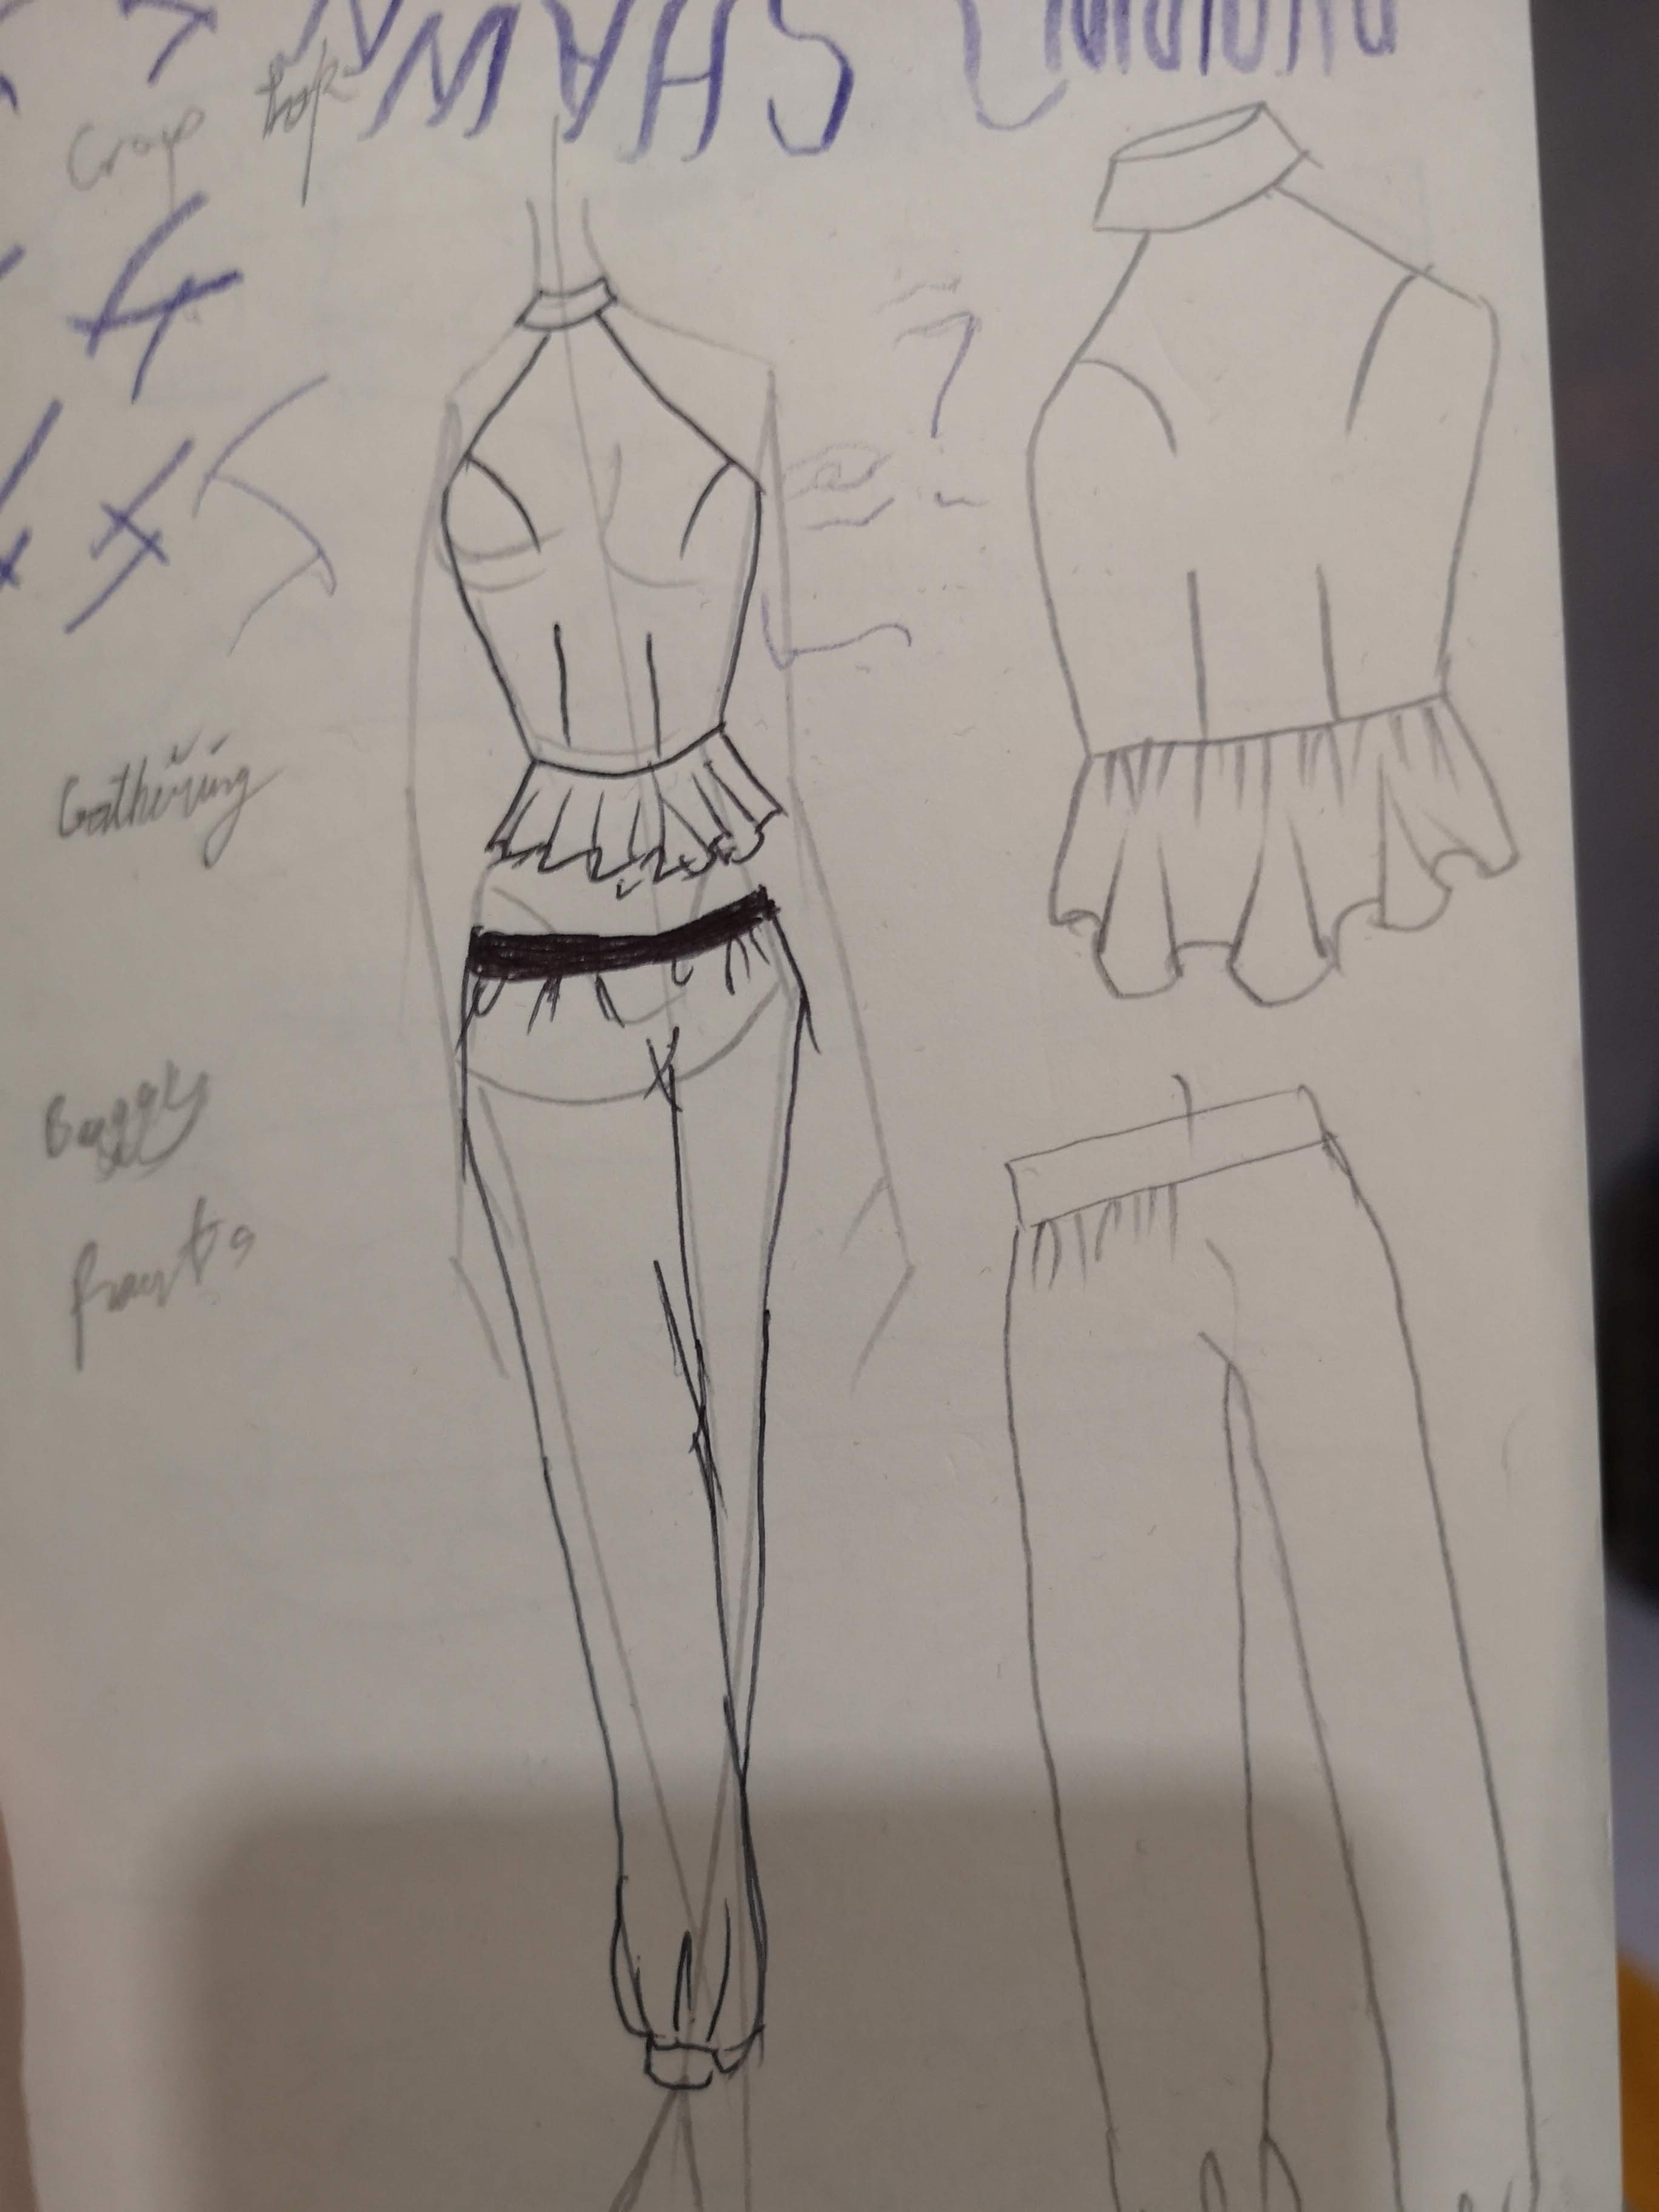 SHAWN
Crop top
Gathering
Baggy
Pants